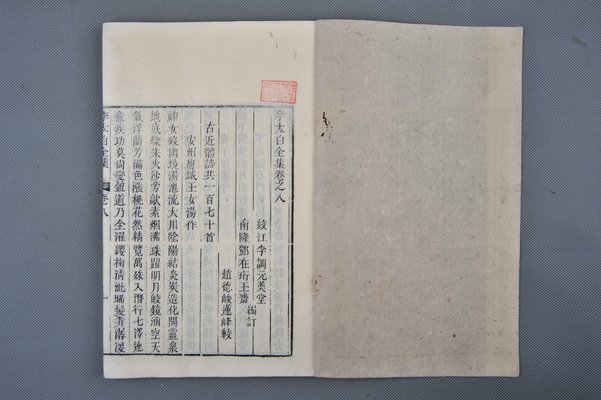 李太白全集卷之八
江李調元羹堂
南隆鄧在珩玉齋 編訂
趙德蓮峰較
古近體詩共一百七十首
安州應城玉女湯作
神女歿幽境湯池流大川陰陽結炎炭造化開靈泉
地底爍朱火沙旁歊素烟沸珠躍明月皎鏡涵空天
氣浮蘭芳滿色漲桃花然精覽萬殊入潛行七澤連
愈疾功莫尚變盈道乃全濯纓掬清泚晞髮弄潺湲
李太白全集 卷八 一